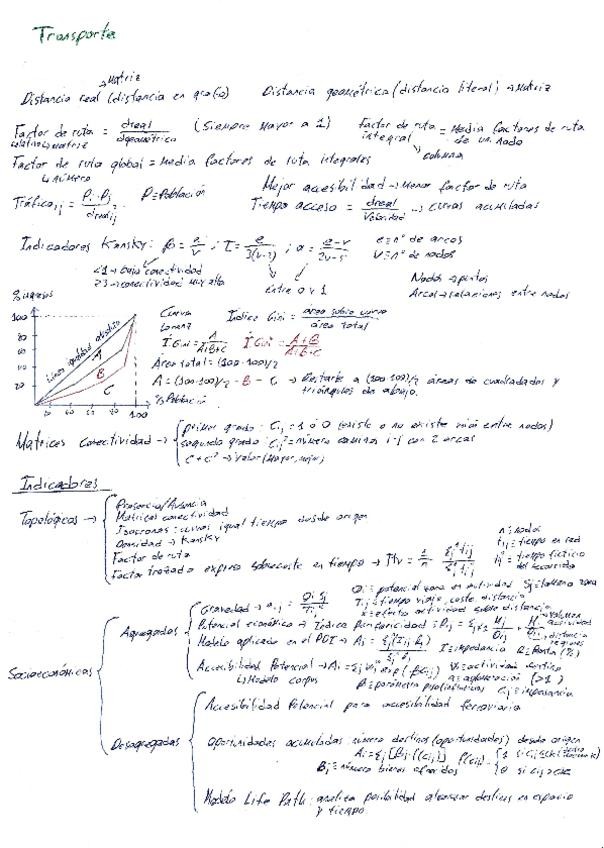 Transporte
Matriz
Distancia real (distancia en grafo) Distancia geométrica (distancia literal) → Matriz
Factor de ruta = dreal / dgeométrica (Siempre mayor a 1) Factor de ruta integral = Media factores de ruta de un nodo
↳ Matriz ↳ columna
Factor de ruta global = Media factores de ruta integrales
↳ número Mejor accesibilidad → Menor factor de ruta
Tráfico ij = Pi · Pj / dreal ij P ≡ Población Tiempo acceso = dreal / Velocidad → Curvas acumuladas
Indicadores Kansky: β = e/v ; γ = e / 3(v-2) ; α = e-v / 2v-5 e ≡ nº de arcos
V ≡ nº de nodos
<1 → baja conectividad
>3 → conectividad muy alta
entre 0 y 1
Nodos → puntos
Arcos → relaciones entre nodos
% ingresos
100
80
60
40
20
Línea igualdad absoluta
A
B
C
20 40 60 80 100
% Población
Curva Lorenz Índice Gini = area sobre curva / área total
I Gini = A / A+B+C I Gini = A+B / A+B+C
Área total = (100·100)/2
A = (100·100)/2 - B - C → Restarle a (100·100)/2 áreas de cuadrados y
triángulos de abajo.
Matrices conectividad →
primer grado: Cij = 1 ó 0 (existe o no existe vía entre nodos)
segundo grado: Cij² = número caminos i-j con 2 arcos
C + C² → Valor (Mayor, mejor)
Indicadores
Topológicos →
Presencia/Ausencia
Matrices conectividad
Isocronas: curvas igual tiempo desde origen
Densidad → Kansky
Factor de ruta
Factor trazado expresa sobrecoste en tiempo →
n: nodos
tij ≡ tiempo en red
tiempo ficticio
del recorrido
Socioeconómicas
Agregadas
Gravedad →
Oi ≡ potencial zona en actividad Sj ≡ tamaño zona
Tij ≡ tiempo viaje, coste, distancia
efecto actividad sobre distancia
Potencial económico → Índice perifericidad
volumen
actividad
distancia
regiones
Modelo aplicado en el PDI → I ≡ impedancia R ≡ Renta
Accesibilidad Potencial →
↳ Modelo corpus
actividad destino
aglomeración (>1)
β ≡ parámetro
Cij ≡ impedancia
Desagregadas
Accesibilidad Potencial para accesibilidad ferroviaria
Oportunidades acumuladas: número destinos (oportunidades) desde origen
Ai = Σj [Bj · f(cij)]
Bj ≡ número bienes ofrecidos
Modelo Life Path: analiza posibilidad alcanzar destinos en espacio
y tiempo